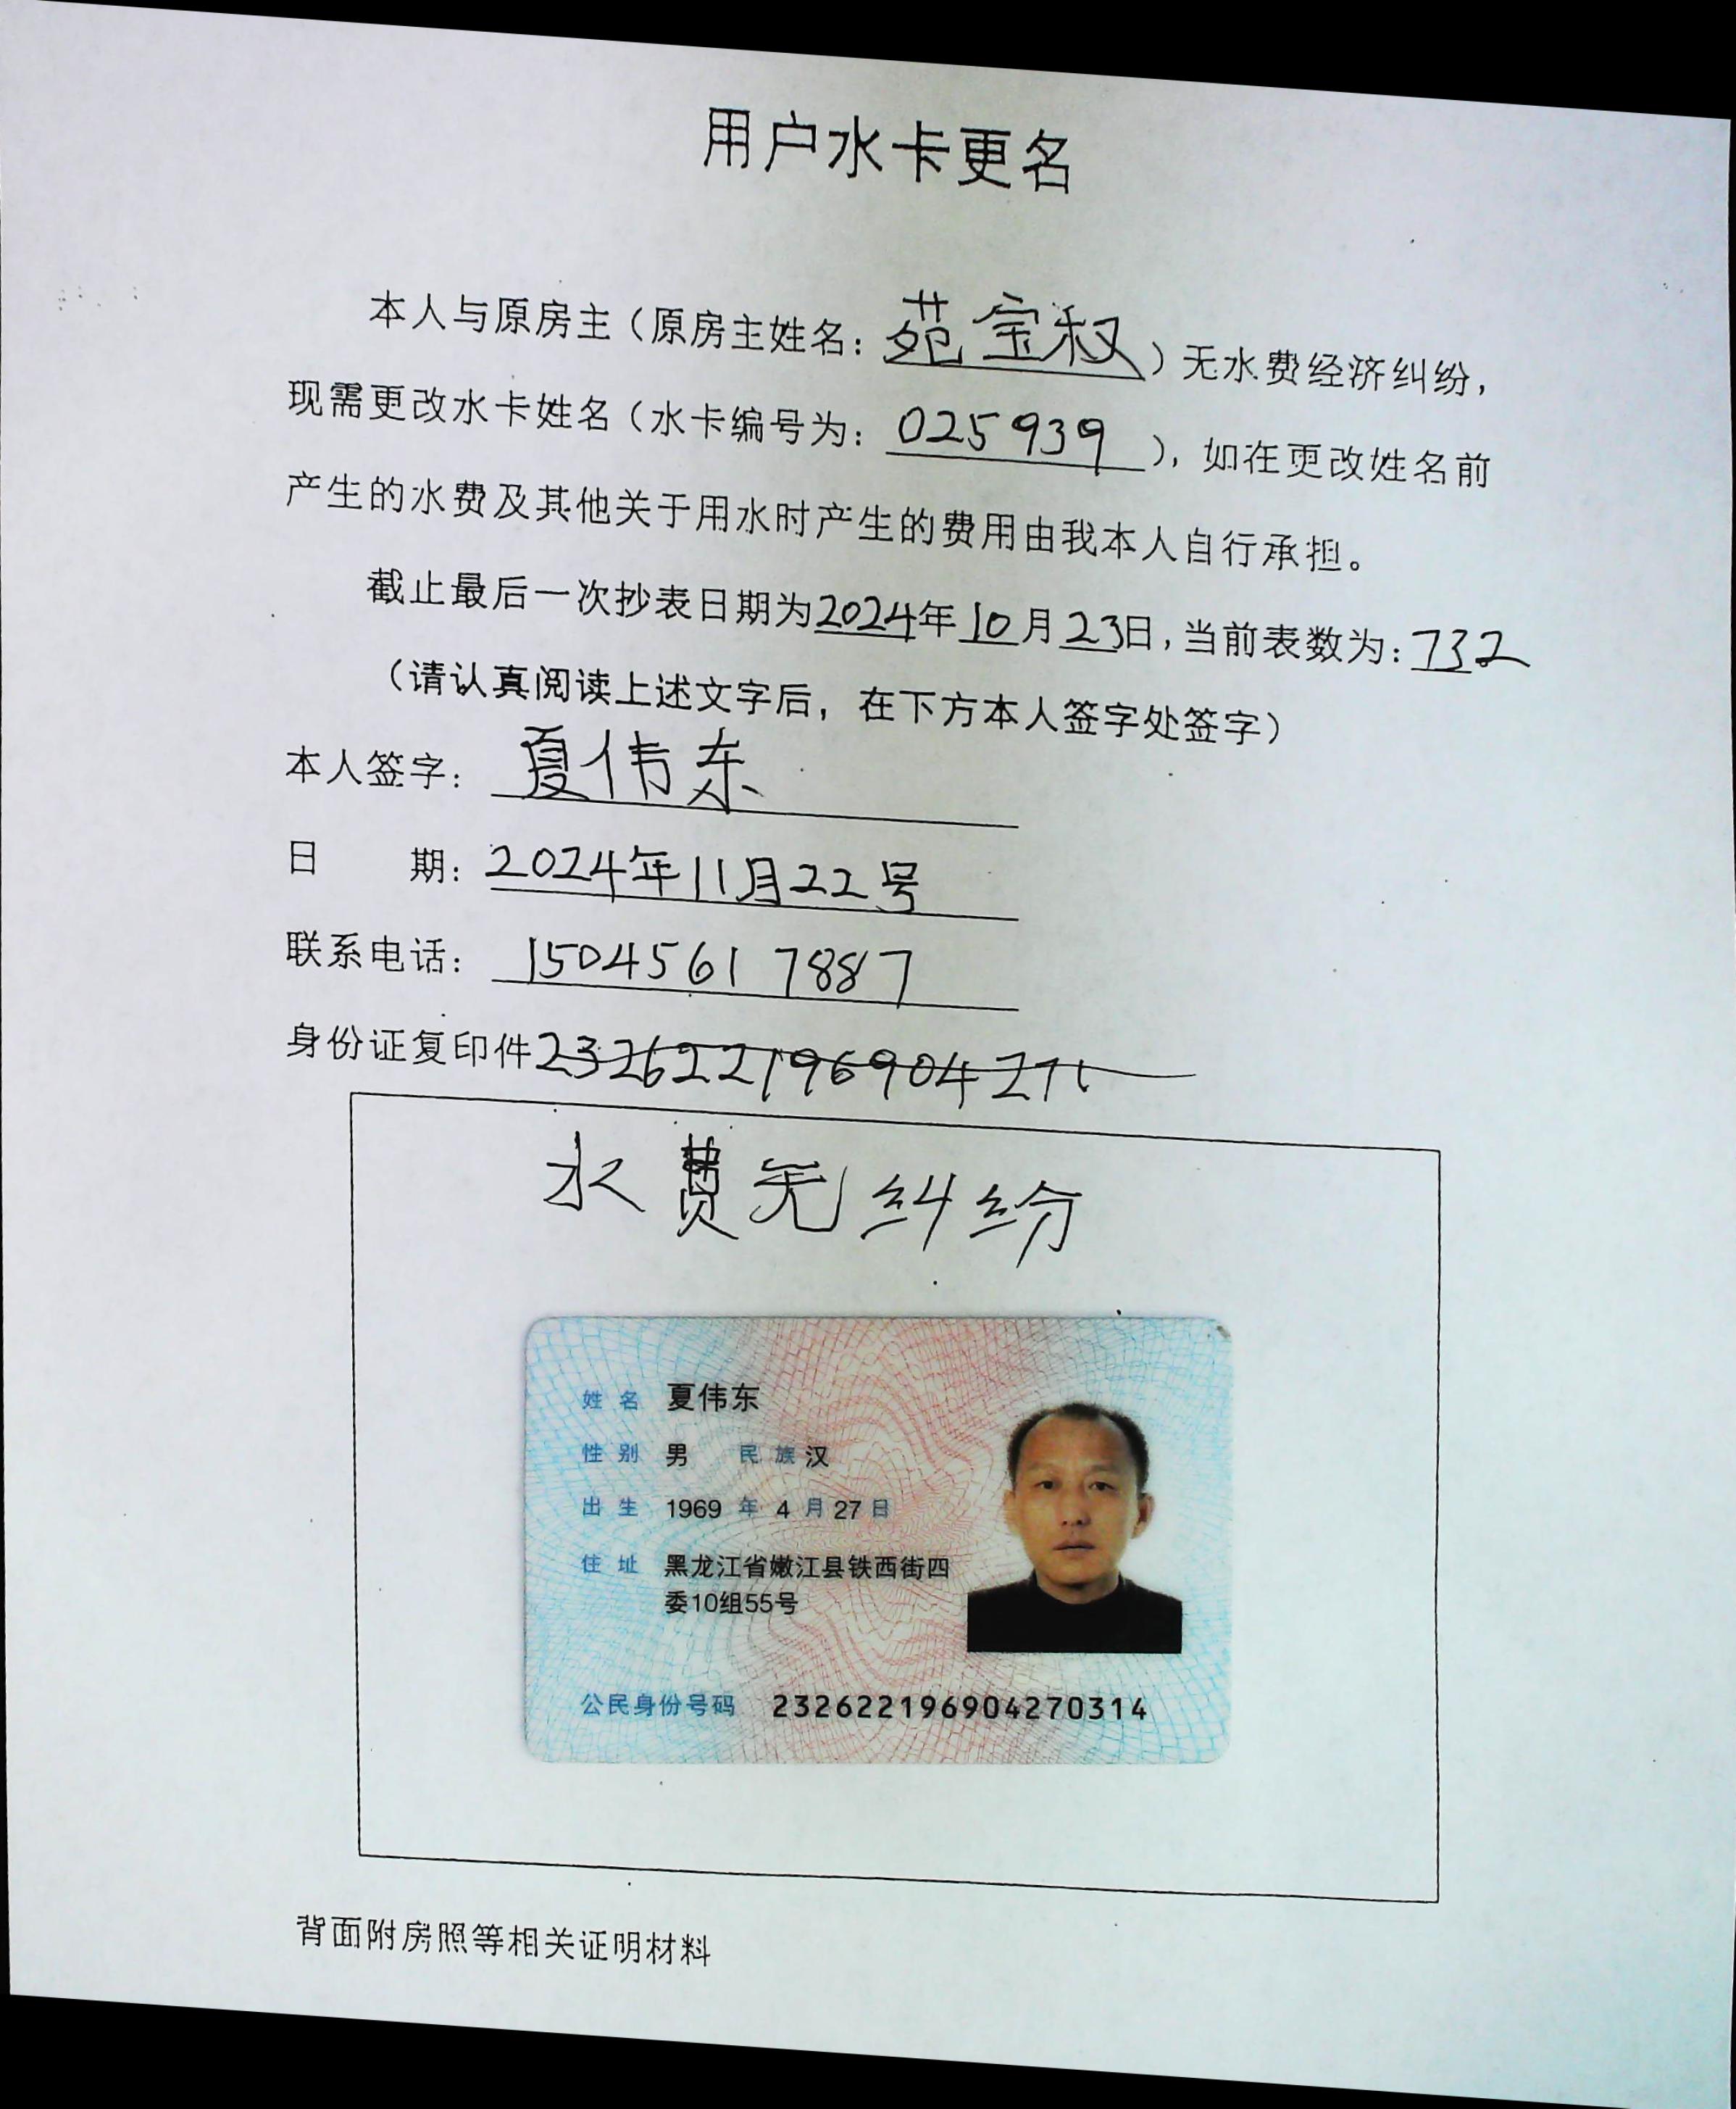 用户水卡更名
本人与原房主（原房主姓名：苑宝权）无水费经济纠纷，
现需更改水卡姓名（水卡编号为：025939），如在更改姓名前
产生的水费及其他关于用水时产生的费用由我本人自行承担。
截止最后一次抄表日期为2024年10月23日，当前表数为：732
（请认真阅读上述文字后，在下方本人签字处签字）
本人签字：夏伟东
日 期：2024年11月22号
联系电话：15045617887
身份证复印件23262219690427
水费无纠纷
姓名 夏伟东
性别 男 民族 汉
出生 1969 年 4 月 27 日
住址 黑龙江省嫩江县铁西街四
委10组55号
公民身份号码 232622196904270314
背面附房照等相关证明材料